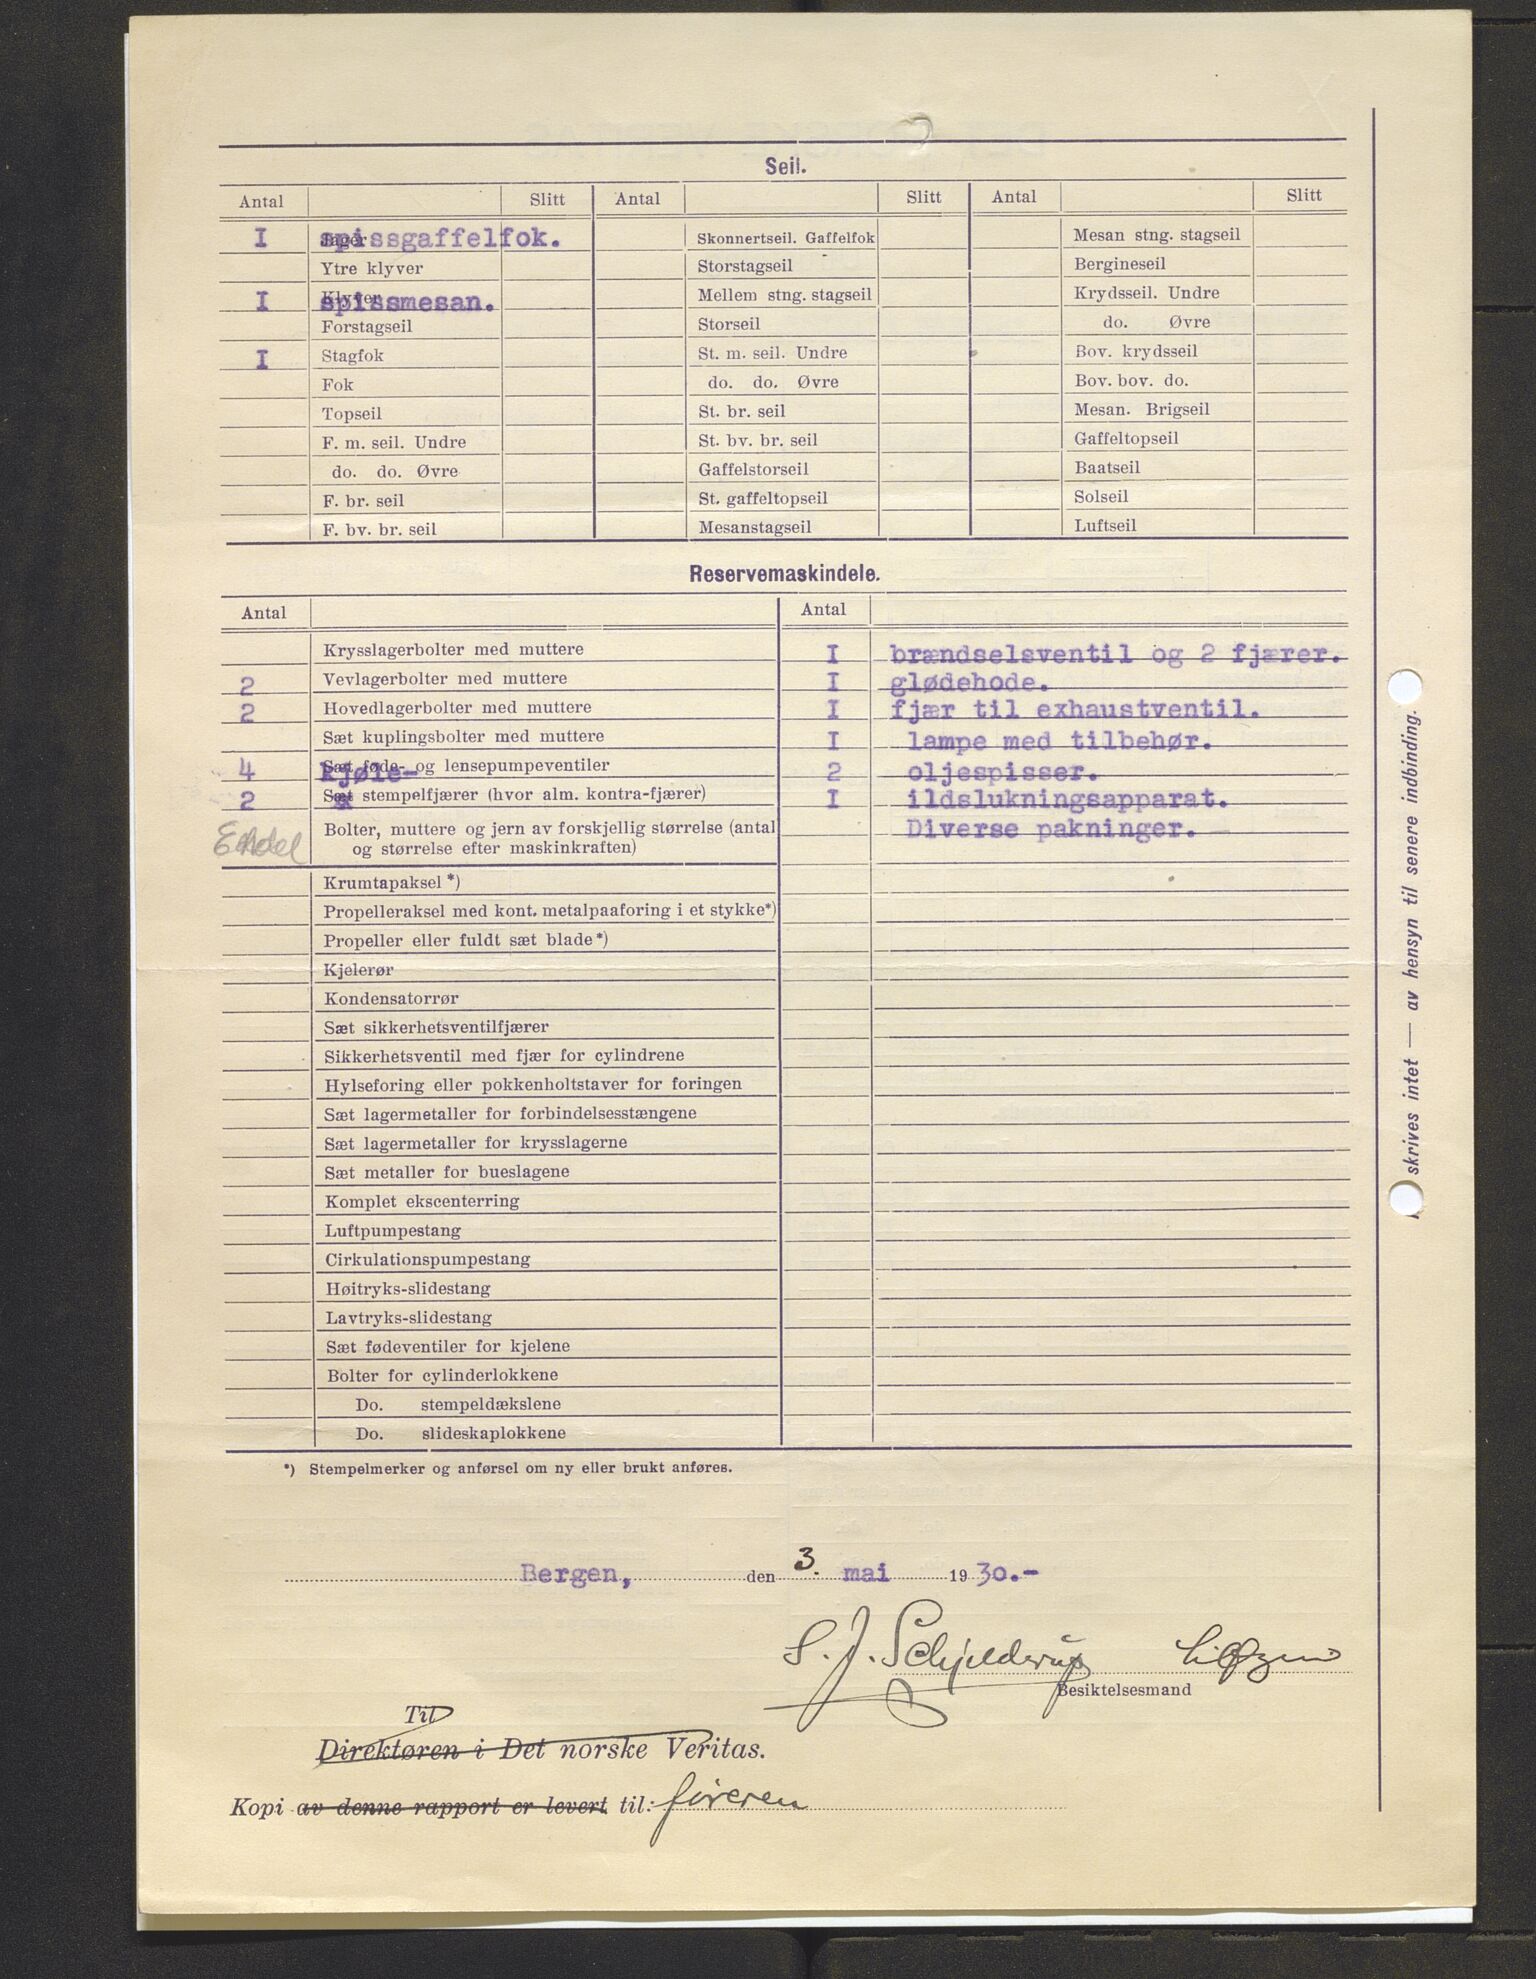 Seil.
Antal Slitt Antal Slitt Antal Slitt
I spissgaffelfok. Skonnertseil. Gaffelfok Mesan stng. stagseil
Ytre klyver Storstagseil Bergineseil
I spissmesan. Mellem stng. stagseil Krydsseil. Undre
Forstagseil Storseil do. Øvre
I Stagfok St. m. seil. Undre Bov. krydsseil
Fok do. do. Øvre Bov. bov. do.
Topseil St. br. seil Mesan. Brigseil
F. m. seil. Undre St. bv. br. seil Gaffeltopseil
do. do. Øvre Gaffelstorseil Baatseil
F. br. seil St. gaffeltopseil Solseil
F. bv. br. seil Mesanstagseil Luftseil
Reservemaskindele.
Antal Antal
Krysslagerbolter med muttere I brændselsventil og 2 fjærer.
2 Vevlagerbolter med muttere I glødehode.
2 Hovedlagerbolter med muttere I fjær til exhaustventil.
Sæt kuplingsbolter med muttere I lampe med tilbehør.
4 kjøle- og lensepumpeventiler 2 oljespisser.
2 Sæt stempelfjærer (hvor alm. kontra-fjærer) I ildslukningsapparat.
Endel Bolter, muttere og jern av forskjellig størrelse (antal Diverse pakninger.
og størrelse efter maskinkraften)
Krumtapaksel *)
Propelleraksel med kont. metalpaaforing i et stykke*)
Propeller eller fuldt sæt blade *)
Kjelerør
Kondensatorrør
Sæt sikkerhetsventilfjærer
Sikkerhetsventil med fjær for cylindrene
Hylseforing eller pokkenholtstaver for foringen
Sæt lagermetaller for forbindelsesstængene
Sæt lagermetaller for krysslagerne
Sæt metaller for bueslagene
Komplet ekscenterring
Luftpumpestang
Cirkulationspumpestang
Høitryks-slidestang
Lavtryks-slidestang
Sæt fødeventiler for kjelene
Bolter for cylinderlokkene
Do. stempeldækslene
Do. slideskaplokkene
*) Stempelmerker og anførsel om ny eller brukt anføres.
Bergen, den 3. mai 1930.-
S. J. Schjelderup
Besiktelsesmand
Til
Direktøren i Det norske Veritas.
Kopi av denne rapport er levert til: føreren
skrives intet — av hensyn til senere indbinding.